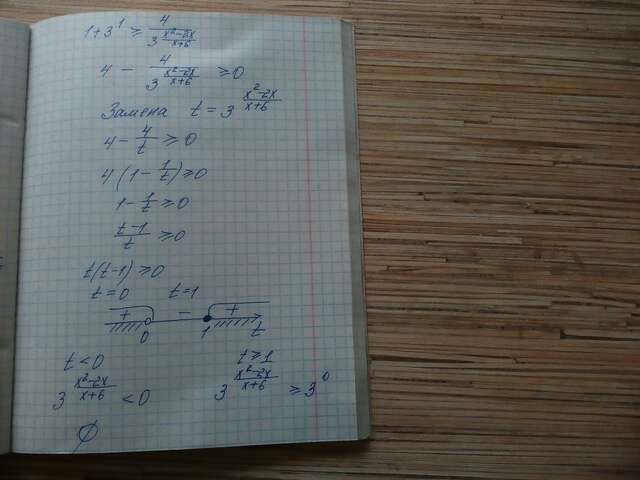 1+3^1 ≥ 4/3^((x²-2x)/(x+6))
4 - 4/3^((x²-2x)/(x+6)) ≥ 0
Замена t = 3^((x²-2x)/(x+6))
4 - 4/t ≥ 0
4(1 - 1/t) ≥ 0
1 - 1/t ≥ 0
(t-1)/t ≥ 0
t(t-1) ≥ 0
t=0 t=1
+ - +
0 1 t
t<0 t≥1
3^((x²-2x)/(x+6)) < 0 3^((x²-2x)/(x+6)) ≥ 3^0
∅